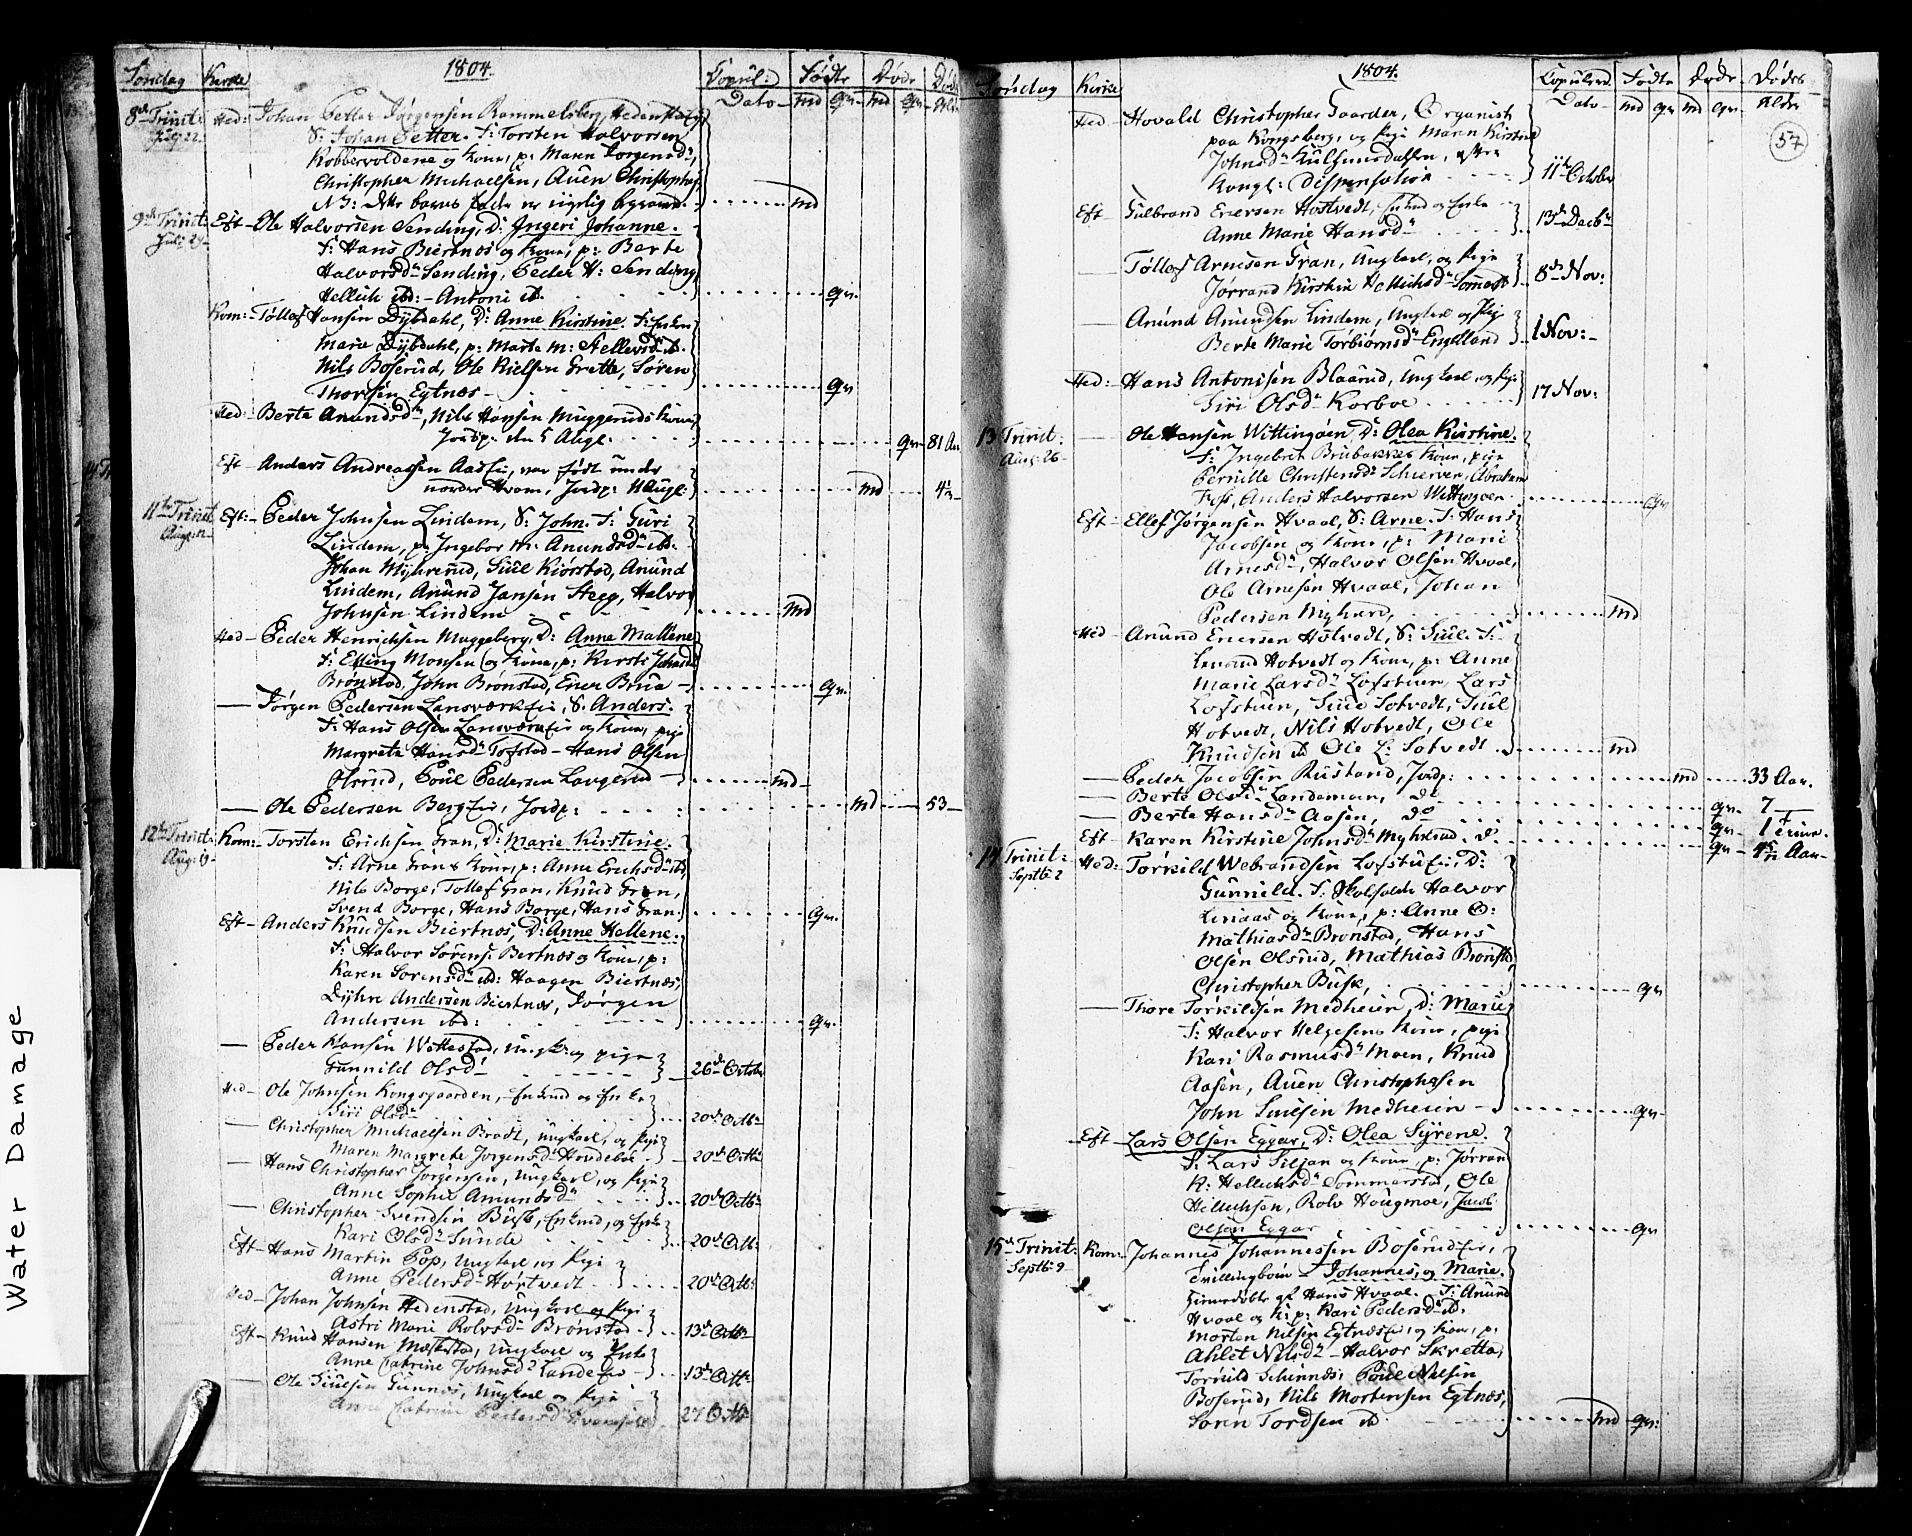 Water Damage
Søndag Kirke 1804. Copul: Fødte Døde Døde
Dato md qv md qv
8de Trinit: Hed: Johan Petter Jørgensen Rammelsberg, Hedenstad
July 22. S: Johan Petter. F: Torsten Halvorsen
Kobbervoldene og Kone, p: Maren Jørgensdr,
Christopher Michaelsen, Auen Christophers
NB: dette barns fader er rigtig begravet. md
9de Trinit: Eft Ole Halvorsen Sending, D: Ingeri Johanne.
Juli 29 F: Hans Biertnæs og Kone, p: Berte
Halvorsdr Sending, Peder H: Sending
Hellich ibd: Antoni ib. qv.
Kom: Tollef Hansen Dybdahl, D: Anne Kirstine. F: Enken
Marie Dybdahl, p: Marte M: Hellevsdr ib.
Nils Boserud, Ole Nielsen Grette, Søren
Thorsen Egtnæs qv
Hed: Berte Amundsdr, Nils Hansen Muggeruds Kone,
Jordp: den 5 Aug: qv 81 Aar
Eft Anders Andreassen Aasen, var født under
nordre Hvam, Jordp: 11 Aug: md 4
11te Trinit: Eft: Peder Johnsen Lindem, S: John. F: Guri
Aug: 12 Lindem, p: Ingebor M: Anundsdr ibd.
Johan Myhrerud, Juul Kiørstad, Anund
Lindem, Anund Jansen Stegg, Halvor
Johnsen Lindem md
Hed Peder Henrichsen Muggeberg, D: Anne Mallene
F: Elling Monsen og Kone, p: Kirsti Johansdr
Brønstad, John Brønstad, Ener Brua qv.
Jørgen Pedersen Lansværkeie, S: Anders.
F: Hans Olsen Lansværkeie og Kone, pige
Margrete Hansdr Tofstad Hans Olsen
Poul Pedersen Laugerud md
Ole Pedersen Bergeie, Jordp: md 53
12te Trinit: Kom: Torsten Erichsen Gran, D: Marie Kirstine.
Aug: 19 F: Arne Grans Kone, p: Anne Erichsdr ib
Nils Borge, Tollef Gran, Knud Gran,
Svend Borge, Hans Borge, Hans Gran. qv.
Eft Anders Knudsen Biertnæs, D: Anne Hellene.
F: Halvor Sørens: Bertnæs og Kone, p:
Karen Sørensdr ibd: Haagen Biertnæs,
Andersen Biertnæs, Jørgen
Andersen ibd: qv.
Peder Hansen Wettestad, Ungk: og pige
Gunnild Olsdr 26de Octobr
Hed Ole Johnsen Kongsgaarden, Enkmd og Enke
Siri Olsdr 20de Octbr
Christopher Michaelsen Bradt, Ungkarl, og Pige
Maren Margrete Jørgensdr Hovdeboe 20de Octbr
Hans Christopher Jørgensen, Ungkarl, og Pige
Anne Sophie Amundsdr 20de Octbr
Christopher Svendsen Busk, Enkmd, og Enke
Kari Olsdr Sunde 20de Oct:
Eft Hans Martin Pop, Ungkarl, og Pige
Anne Pedersdr Hørtvedt 20de Oct:
Hed Johan Johnsen Hedenstad, Ungkarl og Pige
Astri Marie Rolvsdr Brønstad 13de Octbr
Eft Knud Hansen Mæstestad, Ungkarl og Enke
Anne Catrine Johnsdr Landeeie 13de Octbr
Ole Juulsen Gunnes, Ungkarl og Pige
Anne Catrine Pedersdr 27 Octbr
Søndag Kirke 1804. Copulered Fødte Døde Dødes
Dato md qv md qv Alder
57
Hed Hovald Christopher Gaarder, Organist
paa Kongsberg, og Pige Maren Kirstine
Johnsdr, efter
Kongl: Dispensation 11te October
Eft Gulbrand Enersen Hostvedt, Enkmd og Enke
Anne Marie Hansdr 13de Decbr
Tollef Arnesen Gran, Ungkarl, og Pige
Jørrand Kirstine Hellichsdr Somerst 8de Nov:
Anund Amundsen Lindem, Ungkarl og Pige
Berte Marie Torbiørnsdr Engelland 1 Nov:
Hed: Hans Antonisen Blaarud, Ungkarl, og Pige
Siri Olsdr Korboe 17 Nov:
13 Trinit: Ole Hansen Wittingøen, D: Olea Kirstine.
Aug: 26 F: Ingebrit Brubakkes Kone, pige
Pernille Christensdr Schierven, Abraham
Foss, Anders Halvorsen Wittingøen qv
Eft Ellef Jørgensen Hvaal, S: Arne. F: Hans
Jacobsen og Kone, p: Marie
Arnesdr, Halvor Olsen Hvaal,
Ole Arnesen Hvaal, Johan
Pedersen Myhrerd, md
Hed Anund Enersen Hotvedt, S: Juul. F:
Hotvedt og Kone, p: Anne
Marie Larsdr Lofstuen, Lars
Lofstuen, Juul Sotvedt, Juul
Hotvedt, Nils Hotvedt, Ole
Knudsen ib Ole L: Sotvedt md
Peder Jacobsen Rustand, Jordp: md 33 Aar.
Berte Olsdr Landeman, do qv 7
Berte Hansdr Aasen, do qv 1
Eft Karen Kirstine Johnsdr Myhrerud. do qv Aar
14 Trinit: Hed: Tørkild Webrandsen Lofstueie, D:
Septb: 2 Gunnild. F: Skolholder Halvor
Linaas og Kone, p: Anne O:
Mathiasdr Brønstad, Hans
Olsen Olsrud, Mathias Brønstd
Christopher Busk, qv
Thore Tørkildsen Medheien, D: Marie.
F: Halvor Helgesens Kone, pige
Kari Rasmusdr Moen, Knud
Aasen, Auen Christophersen
John Juulsen Medheien qv
Eft Lars Olsen Eggar, D: Olea Syrene.
F: Lars Siljan og Kone, p: Jørran
K: Hellichsdr Sommerstd, Ole
Hellichsen, Rolv Hougmoe, Jacob
Olsen Eggar qv
15de Trinit: Kom: Johannes Johannessen Boserudeie,
Septb: 9 Tvillingbørn Johannes, og Marie.
Hiemedøbte af Hans Hvaal. F: Anund
Hvaal og K: p: Kari Pedersdr ib.
Morten Nilsen Egtnæseie, og Kone, p:
Ahlet Nilsdr Halvor Skretta,
Tørkild Schinnæs, Poul Nilsen
Boserud, Nils Mortensen Egtnæs,
Sørn Tordsen ib md qv: